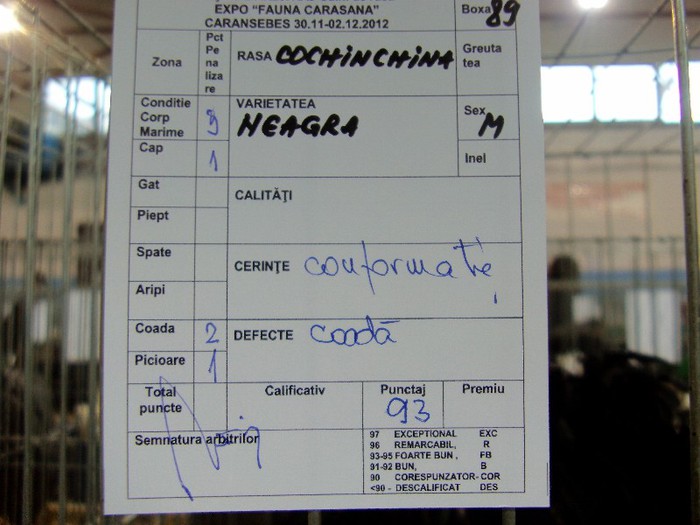 EXPO "FAUNA CARASANA"
CARANSEBES 30.11-02.12.2012
Boxa 89
Zona
Pct
Pe
na
liza
re
RASA COCHINCHINA
Greuta
tea
Conditie
Corp
Marime 3
VARIETATEA
NEAGRA
Sex M
Cap 1
Inel
Gat
CALITĂŢI
Piept
Spate
CERINŢE conformaţie
Aripi
Coada 2
DEFECTE coadă
Picioare 1
Total
puncte
Calificativ
Punctaj
93
Premiu
Semnatura arbitrilor
97 EXCEPTIONAL EXC
96 REMARCABIL, R
93-95 FOARTE BUN, FB
91-92 BUN, B
90 CORESPUNZATOR- COR
<90 - DESCALIFICAT DES